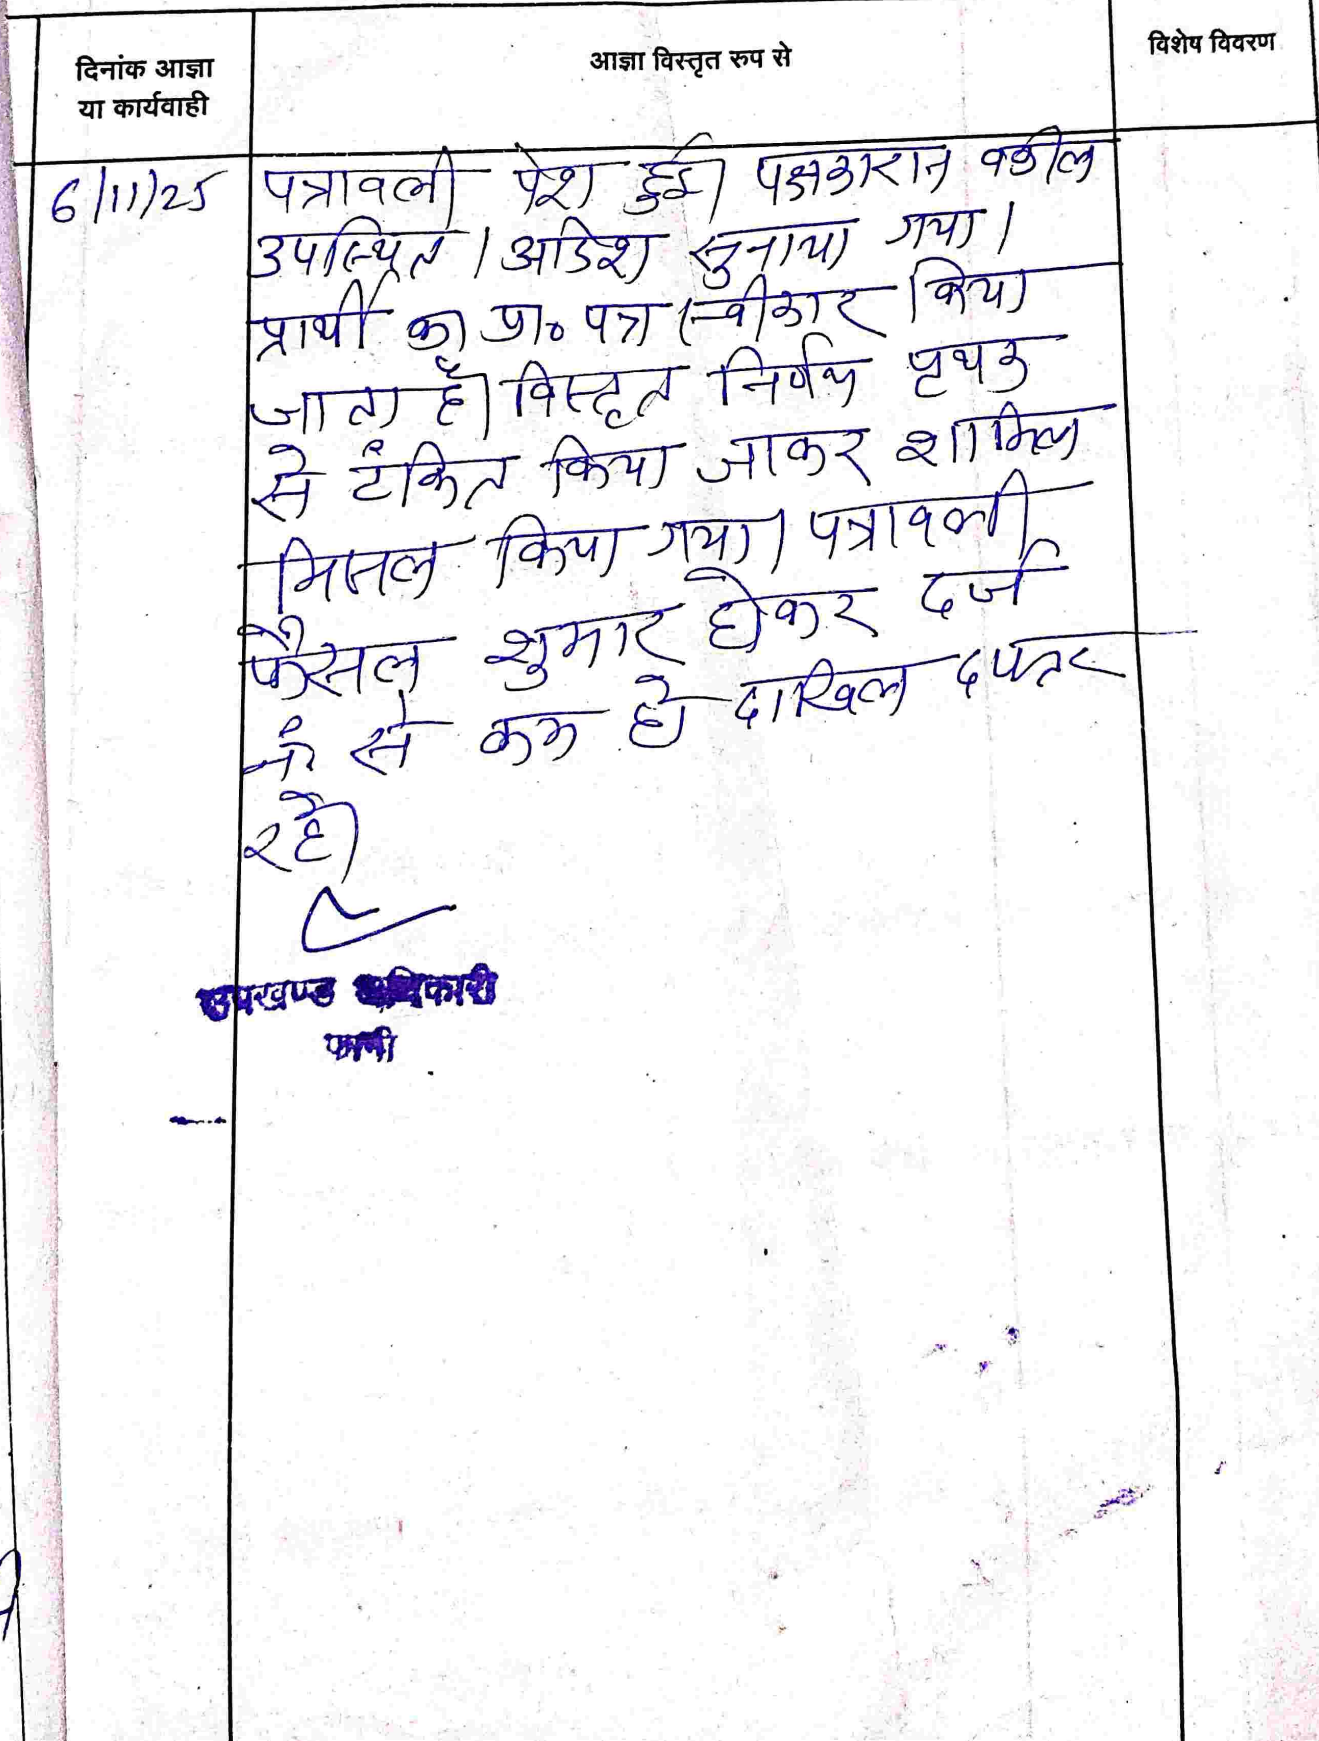 दिनांक आज्ञा
या कार्यवाही
आज्ञा विस्तृत रुप से
विशेष विवरण
6/11/25
पत्रावली पेश हुई। पक्षकारान वकील
उपस्थित। आदेश सुनाया गया।
प्रार्थी का प्रा० पत्र स्वीकार किया
जाता है। विस्तृत निर्णय पृथक
से टंकित किया जाकर शामिल
मिसल किया गया। पत्रावली
फैसल शुमार होकर दर्ज
नं. से कम हो दाखिल दफ्तर
रहे।
उपखण्ड अधिकारी